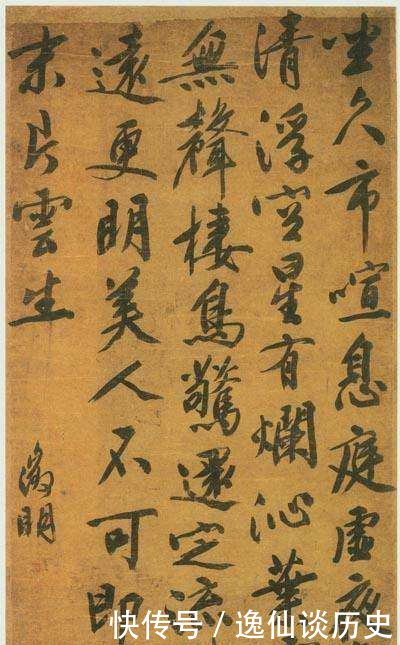 坐久市喧息庭虛夜
清浮空星有爛沁葉
無聲棲鳥驚還定流
遠更明美人不可即
末片雲生
徵明
快传号 / 逸仙谈历史